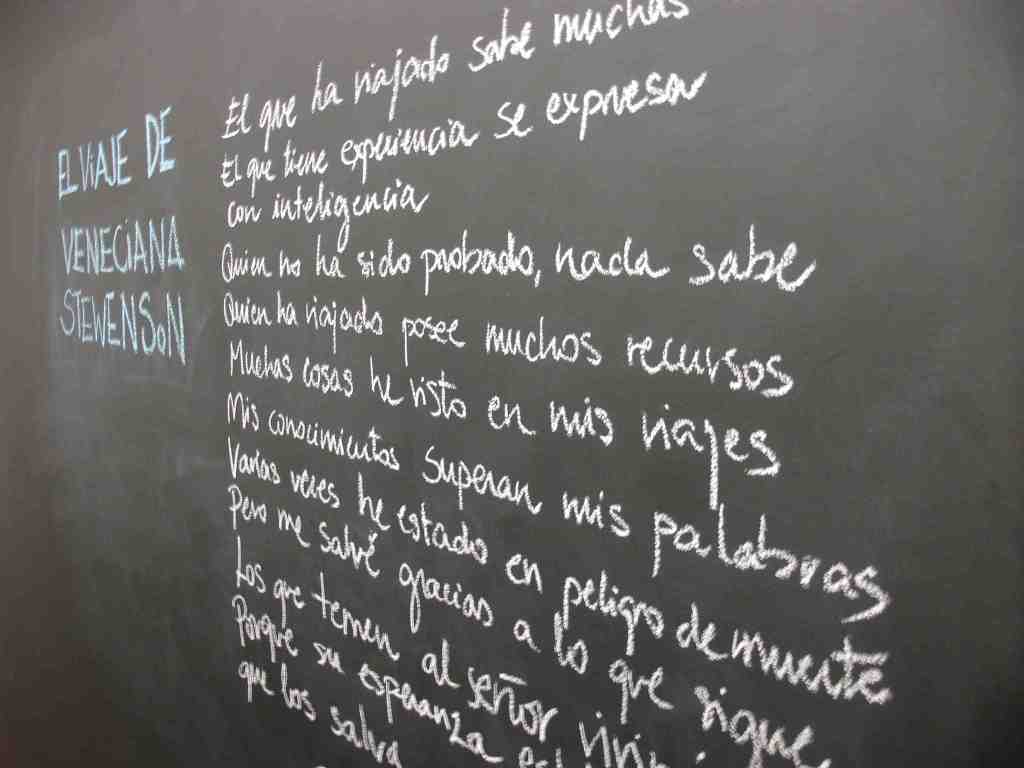 EL VIAJE DE
VENECIANA
STEVENSON
El que ha viajado sabe muchas
El que tiene experiencia se expresa
con inteligencia
Quien no ha sido probado, nada sabe
Quien ha viajado posee muchos recursos
Muchas cosas he visto en mis viajes
Mis conocimientos superan mis palabras
Varias veces he estado en peligro de muerte
Pero me salvé gracias a lo que sigue
Los que temen al señor
Porque su esperanza
que los salva